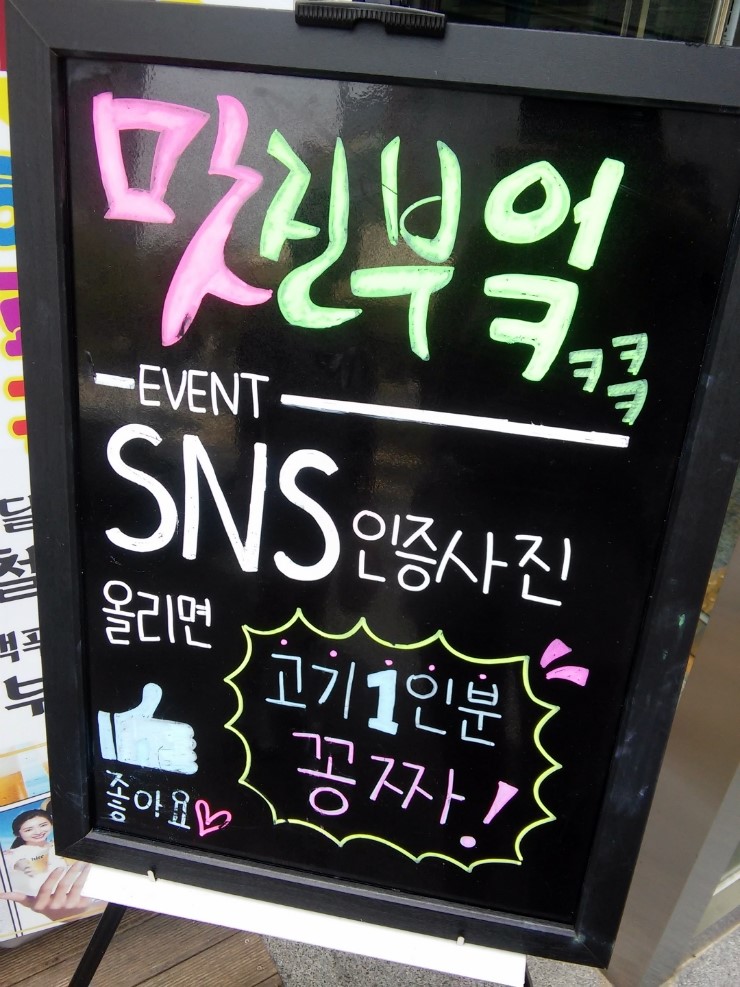 맛진부엌
ㅋㅋㅋ
EVENT
SNS 인증사진
올리면
고기 1인분
꽁짜!
좋아요